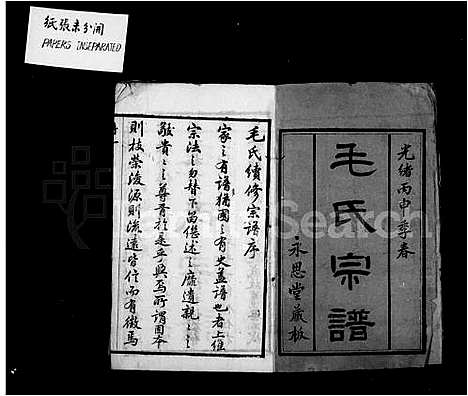 紙張未分開
PAPERS INSEPARATED
光緒丙申季春
毛氏宗譜
永思堂藏板
毛氏續修宗譜序
家之有譜猶國之有史蓋譜也者上維
宗法之勿替下留繼述之靡遺親之
敬貴之尊胥於是乎興焉所謂固本
則枝榮浚源則流遠皆信而有徵焉